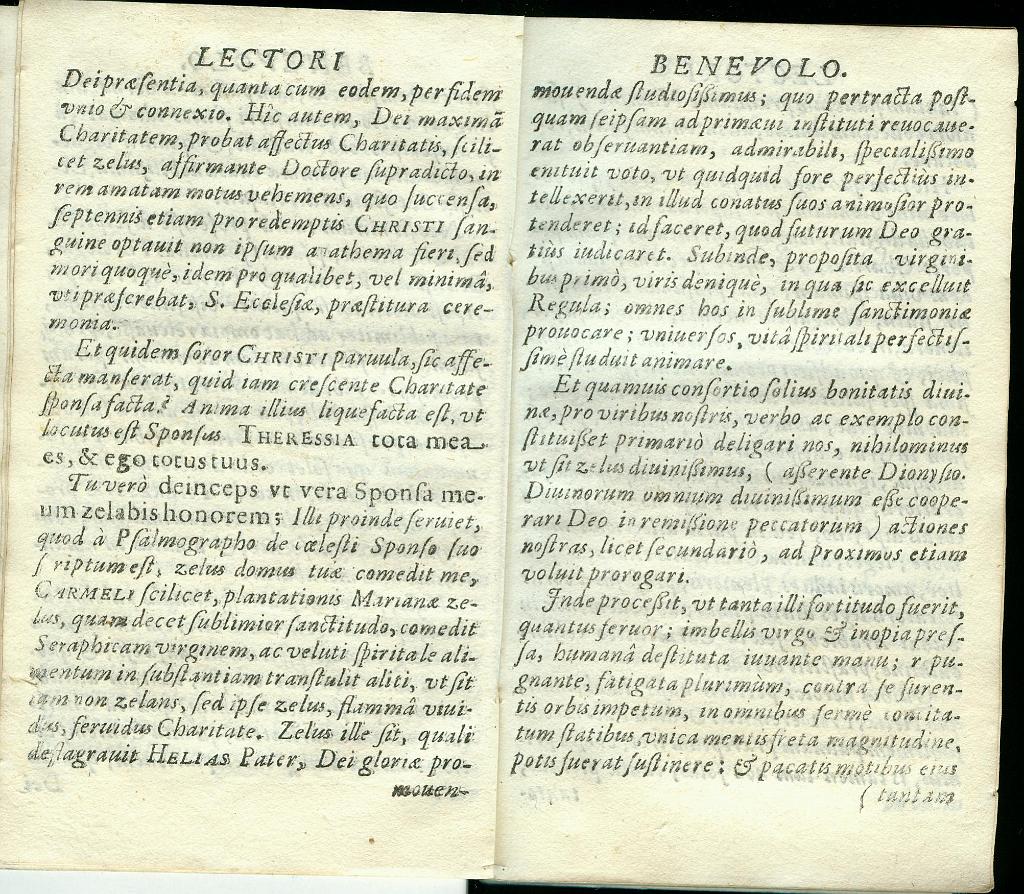 LECTORI
Dei præſentia, quanta cum eodem, per fidem
vnio & connexio. Hîc autem, Dei maximã
Charitatem, probat affectus Charitatis, ſcili-
cet zelus, affirmante Doctore ſupradicto, in
rem amatam motus vehemens, quo ſuccenſa,
ſeptennis etiam pro redemptis CHRISTI ſan-
guine optauit non ipſum anathema fieri, ſed
mori quoquè, idem pro qualibet, vel minimâ,
vti præſerebat, S. Eccleſiæ, præſtitura cere-
monia.
Et quidem ſoror CHRISTI paruula, ſic affe-
cta manſerat, quid iam creſcente Charitate
ſponſa facta? Anima illius liquefacta eſt, vt
locutus eſt Sponſus THERESSIA tota mea
es, & ego totus tuus.
Tu verò deinceps vt vera Sponſa me-
um zelabis honorem; Illi proinde ſeruiet,
quod à Pſalmographo de cœleſti Sponſo ſuo
ſcriptum eſt, zelus domus tuæ comedit me,
CARMELI ſcilicet, plantationis Marianæ ze-
lus, quam decet ſublimior ſanctitudo, comedit
Seraphicam virginem, ac veluti ſpiritale ali-
mentum in ſubſtantiam tranſtulit aliti, vt ſit
iam non zelans, ſed ipſe zelus, flammâ viui-
dus, feruidus Charitate. Zelus ille ſit, quali
deflagrauit HELIAS Pater, Dei gloriæ pro-
mouen-
BENEVOLO.
mouendæ ſtudioſiſsimus; quo pertracta poſt-
quam ſeipſam ad primæui inſtituti reuocaue-
rat obſeruantiam, admirabili, ſpecialiſsimo
enituit voto, vt quidquid fore perfectiùs in-
tellexerit, in illud conatus ſuos animoſior pro-
tenderet; id faceret, quod futurum Deo gra-
tiùs iudicaret. Subinde, propoſita virgini-
bus primò, viris deniquè, in qua ſic excelluit
Regula; omnes hos in ſublime ſanctimoniæ
prouocare; vniuerſos, vitâ ſpiritali perfectiſ-
ſimè ſtuduit animare.
Et quamuis conſortio ſolius bonitatis diui-
næ, pro viribus noſtris, verbo ac exemplo con-
ſtituiſſet primariò deligari nos, nihilominus
vt ſit zelus diuiniſsimus, ( aſſerente Dionyſio.
Diuinorum omnium diuiniſsimum eſſe coope-
rari Deo in remiſsione peccatorum ) actiones
noſtras, licet ſecundariò, ad proximos etiam
voluit prorogari.
Inde proceſsit, vt tanta illi fortitudo fuerit,
quantus feruor; imbellis virgo & inopia preſ-
ſa, humanâ deſtituta iuuante manu; r pu-
gnante, fatigata plurimùm, contra ſe furen-
tis orbis impetum, in omnibus fermè concita-
tum ſtatibus, vnica mentis freta magnitudine,
potis fuerat ſuſtinere: & pacatis motibus eius
( tantam